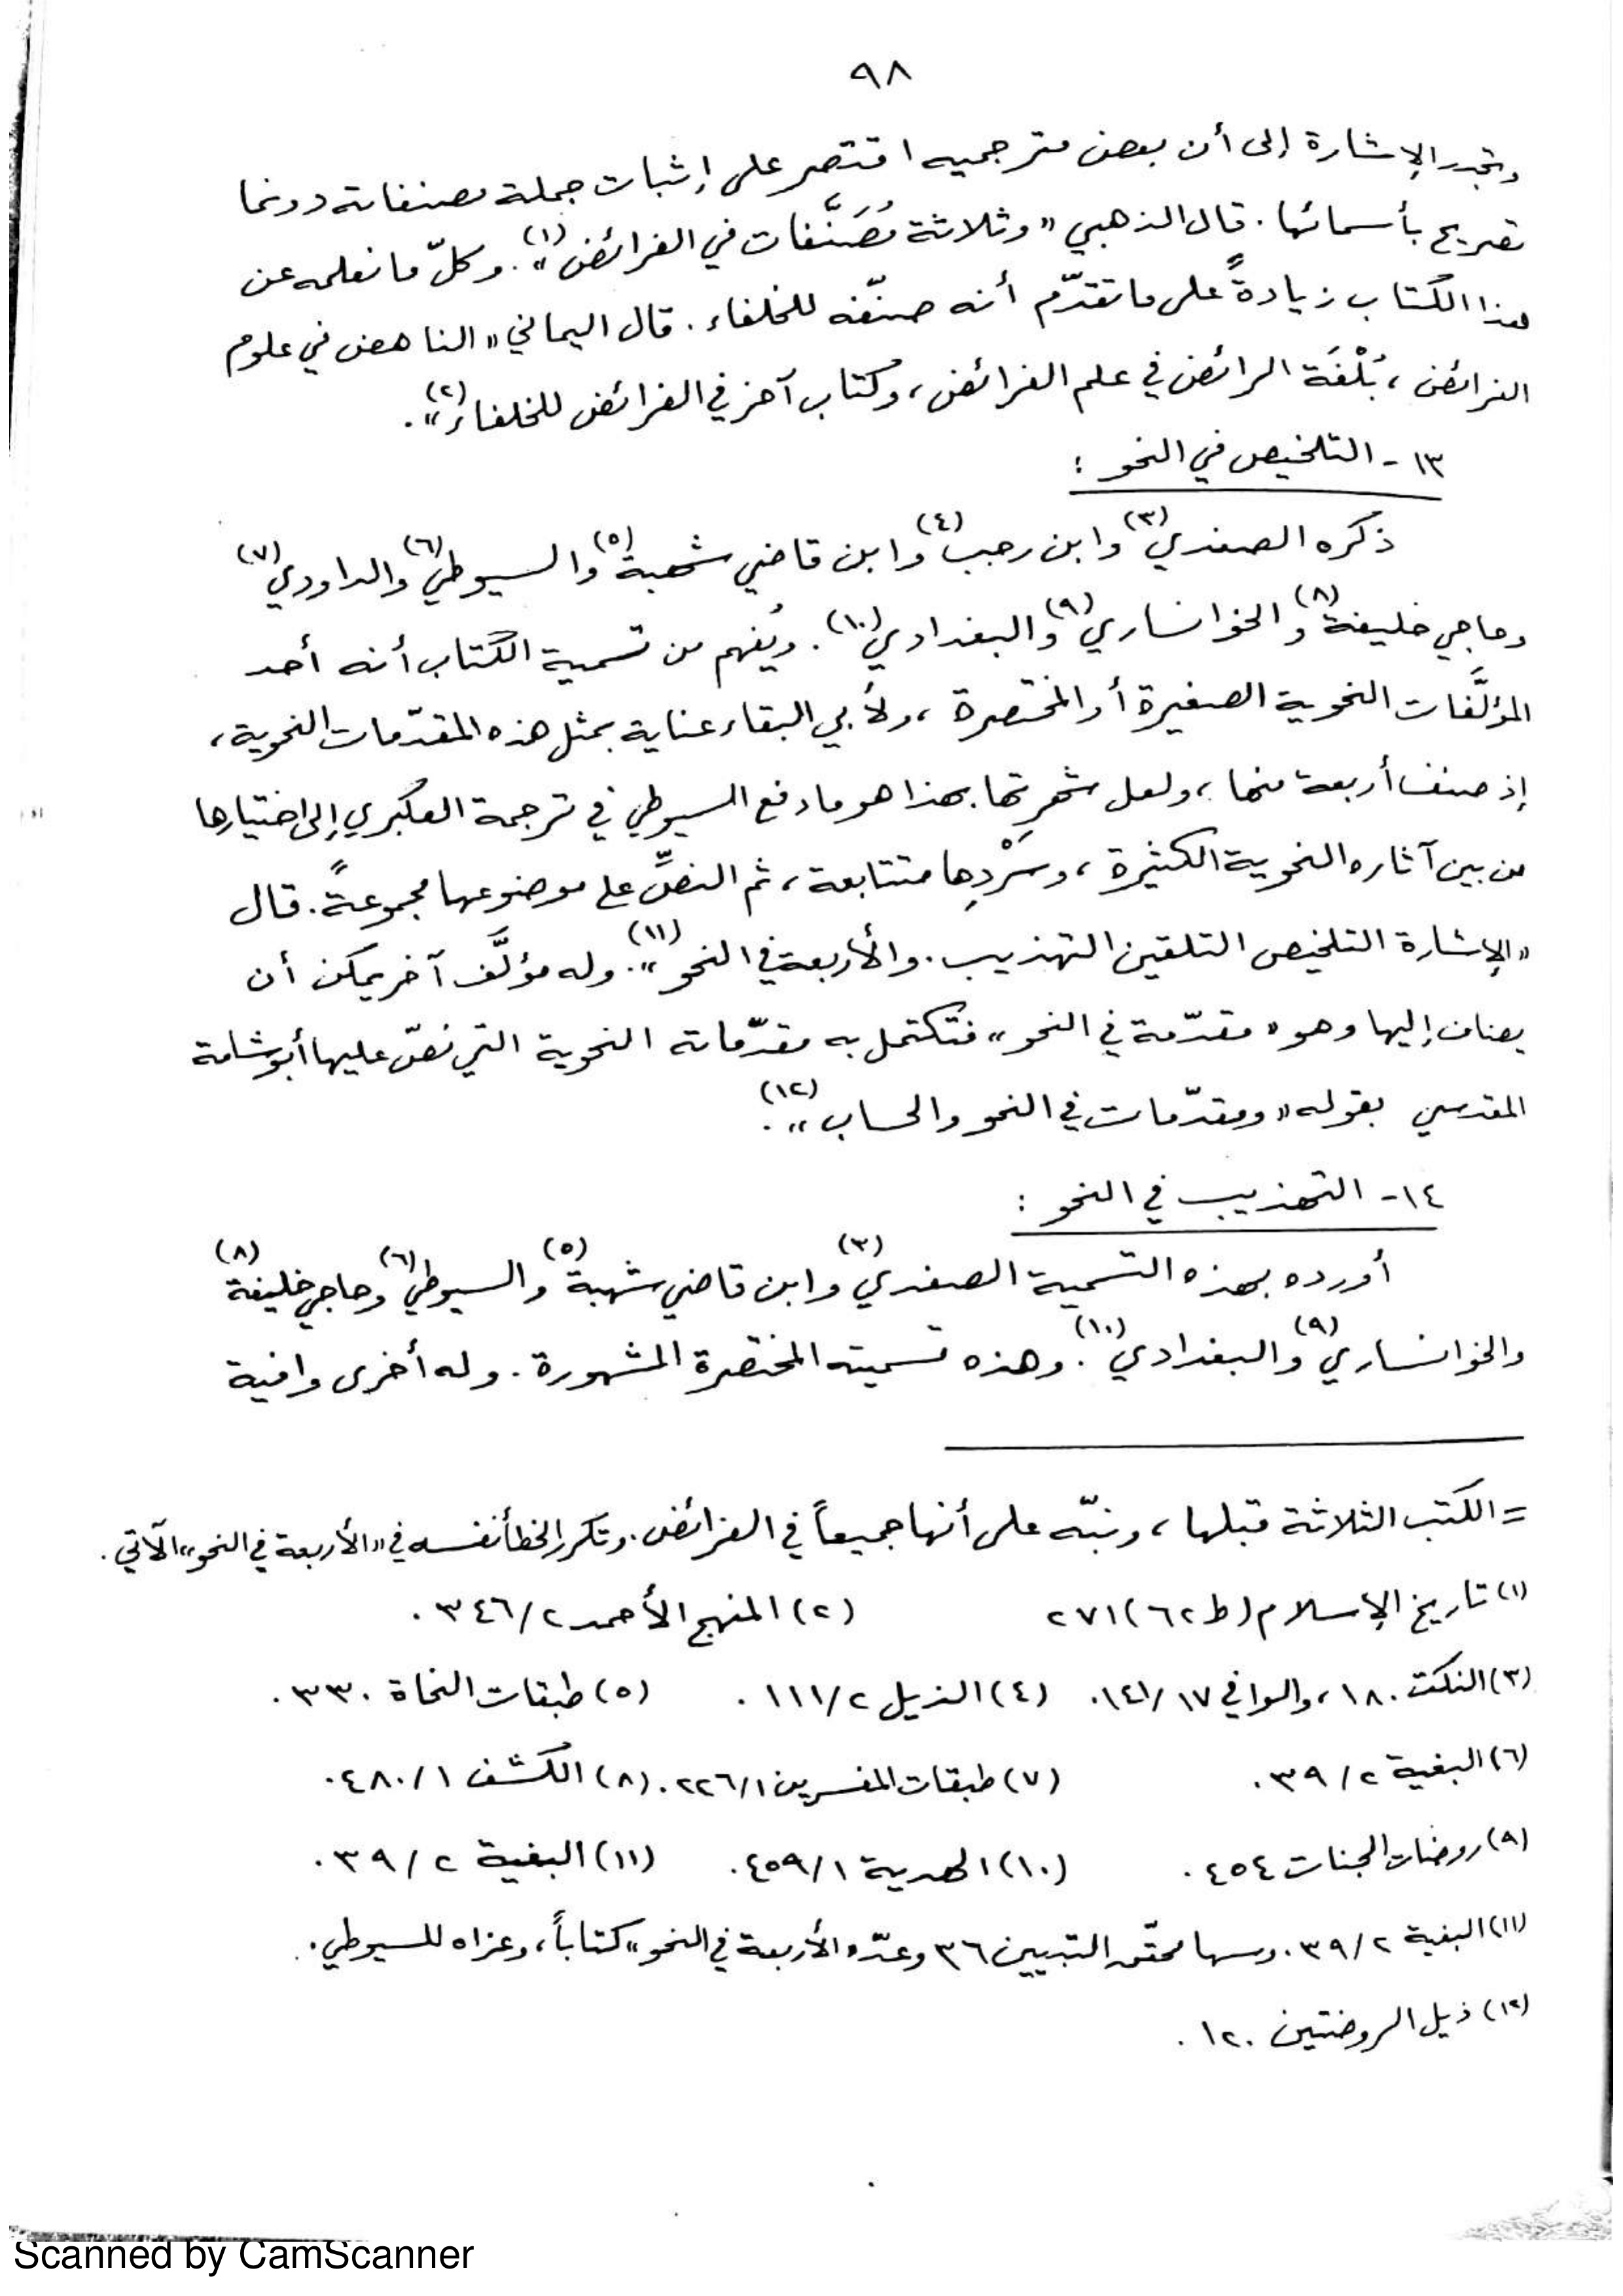 ٩٨
وتجدر الإشارة إلى أن بعض مترجميه اقتصر على إثبات جملة مصنفاته دونما
تصريح بأسمائها. قال الذهبي «وثلاثة مُصَنَّفات في الفرائض(١)». وكلّ ما نعلمه عن
هذا الكتاب زيادةً على ما تقدّم أنه صنّفه للخلفاء. قال اليماني «الناهض في علوم
الفرائض، بُلْغَة الرائض في علم الفرائض، وكتاب آخر في الفرائض للخلفاء(٢)».
١٣- التلخيص في النحو :
ذكره الصفدي(٣) وابن رجب(٤) وابن قاضي شهبة(٥) والسيوطي(٦) والداودي(٧)
وحاجي خليفة(٨) والخوانساري(٩) والبغدادي(١٠). ويُفهم من تسمية الكتاب أنه أحد
المؤلَّفات النحوية الصغيرة أو المختصرة، ولأبي البقاء عناية بمثل هذه المقدّمات النحوية،
إذ صنف أربعة منها، ولعل شهرتها بهذا هو ما دفع السيوطي في ترجمة العكبري إلى اختيارها
من بين آثاره النحوية الكثيرة، وسَرْدِها متتابعة، ثم النصِّ على موضوعها مجموعةً. قال
«الإشارة التلخيص التلقين التهذيب. والأربعة في النحو(١١)». وله مؤلَّف آخر يمكن أن
يضاف إليها وهو «مقدّمة في النحو» فتكتمل به مقدّماته النحوية التي نصّ عليها أبو شامة
المقدسي بقوله «ومقدّمات في النحو والحساب(١٢)».
١٤- التهذيب في النحو :
أورده بهذه التسمية الصفدي(٣) وابن قاضي شهبة(٥) والسيوطي(٦) وحاجي خليفة(٨)
والخوانساري(٩) والبغدادي(١٠). وهذه تسميته المختصرة المشهورة. وله أخرى وافية
= الكتب الثلاثة قبلها، ونبّه على أنها جميعاً في الفرائض. وتكرر الخطأ نفسه في «الأربعة في النحو» الآتي.
(١) تاريخ الإسلام (ط ٦٢) ٢٧١ (٢) المنهج الأحمد ٢/٣٤٦.
(٣) النكت ١٨٠، والوافي ١٧/١٤١. (٤) الذيل ٢/١١١. (٥) طبقات النحاة ٣٣٠.
(٦) البغية ٢/٣٩. (٧) طبقات المفسرين ١/٢٢٦. (٨) الكشف ١/٤٨٠.
(٩) روضات الجنات ٤٥٤. (١٠) الهدية ١/٤٥٩. (١١) البغية ٢/٣٩.
(١١) البغية ٢/٣٩. وسها محقّق التبيين ٣٦ وعدّ «الأربعة في النحو» كتاباً، وعزاه للسيوطي.
(١٢) ذيل الروضتين ١٢٠.
Scanned by CamScanner